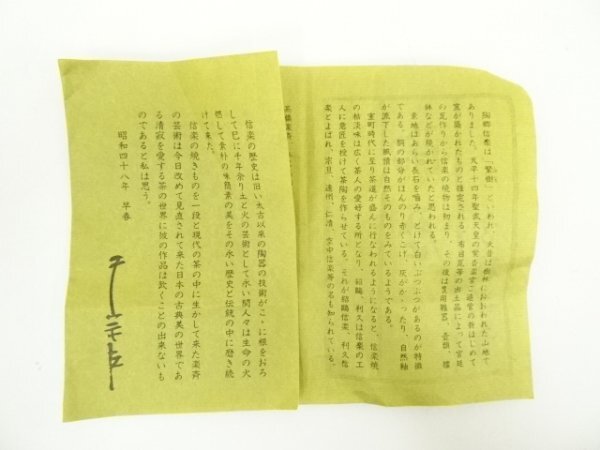 陶郷信楽は「繁樹」といわれ、大昔は樹林におおわれた山地で
ありました。天平十四年聖武天皇の紫香楽宮ご造営の折はじめて
窯が築かれたものと推定される。布目瓦等の出土品によって宮廷
の瓦作りから信楽の焼物は初まり、その後は農用雑器、壺類、擂
鉢などが焼かれていたと思われる。
素地はあらい長石を噛み、とけて白いぶつぶつがあるのが特徴
である。胴の部分がほんのり赤くこげ、灰がかったり、自然釉
が流下した風情は自然そのものをみているようである。
室町時代に至り茶道が盛んに行なわれるようになると、信楽焼
の枯淡味は広く茶人の愛好する所となり、紹鷗、利久は信楽の工
人に意匠を授けて茶陶を作らせている。それが紹鷗信楽、利久信
楽とよばれ、宗旦、遠州、仁清、空中信楽等の名も知られている。
信楽の歴史は旧い太古以来の陶器の技術がここに根をおろ
して已に千年余り土と火の芸術として永い間人々は生命の火
を燃して素朴の味簡素の美をその永い歴史と伝統の中に磨き続
けて来た。
信楽の焼きものを一段と現代の茶の中に生かして来た楽斉
の芸術は今日改めて見直されて来た日本の古典美の世界であ
る清寂を愛する茶の世界に彼の作品は欠くことの出来ないも
のであると私は思う。
昭和四十八年 早春